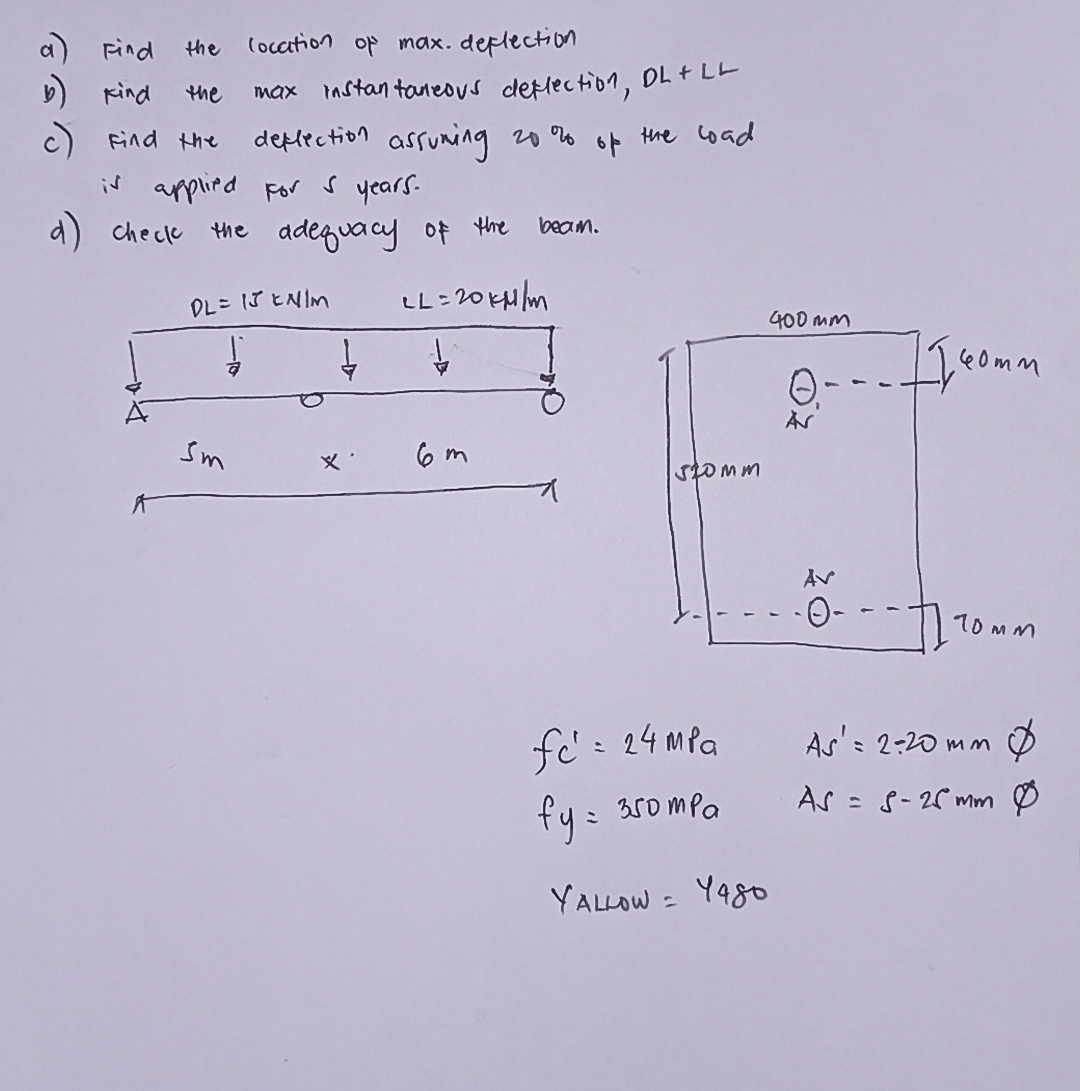 a) Find the location of max. deflection
b) Find the max instantaneous deflection, DL + LL
c) Find the deflection assuming 20% of the load
is applied for 5 years.
d) check the adequacy of the beam.
DL = 15 kN/m LL = 20 kN/m
A
5m x 6 m
400 mm
60mm
As'
520mm
As
70mm
fc' = 24 MPa As' = 2-20 mm Ø
fy = 350 MPa As = 5-25 mm Ø
YALLOW = L/480